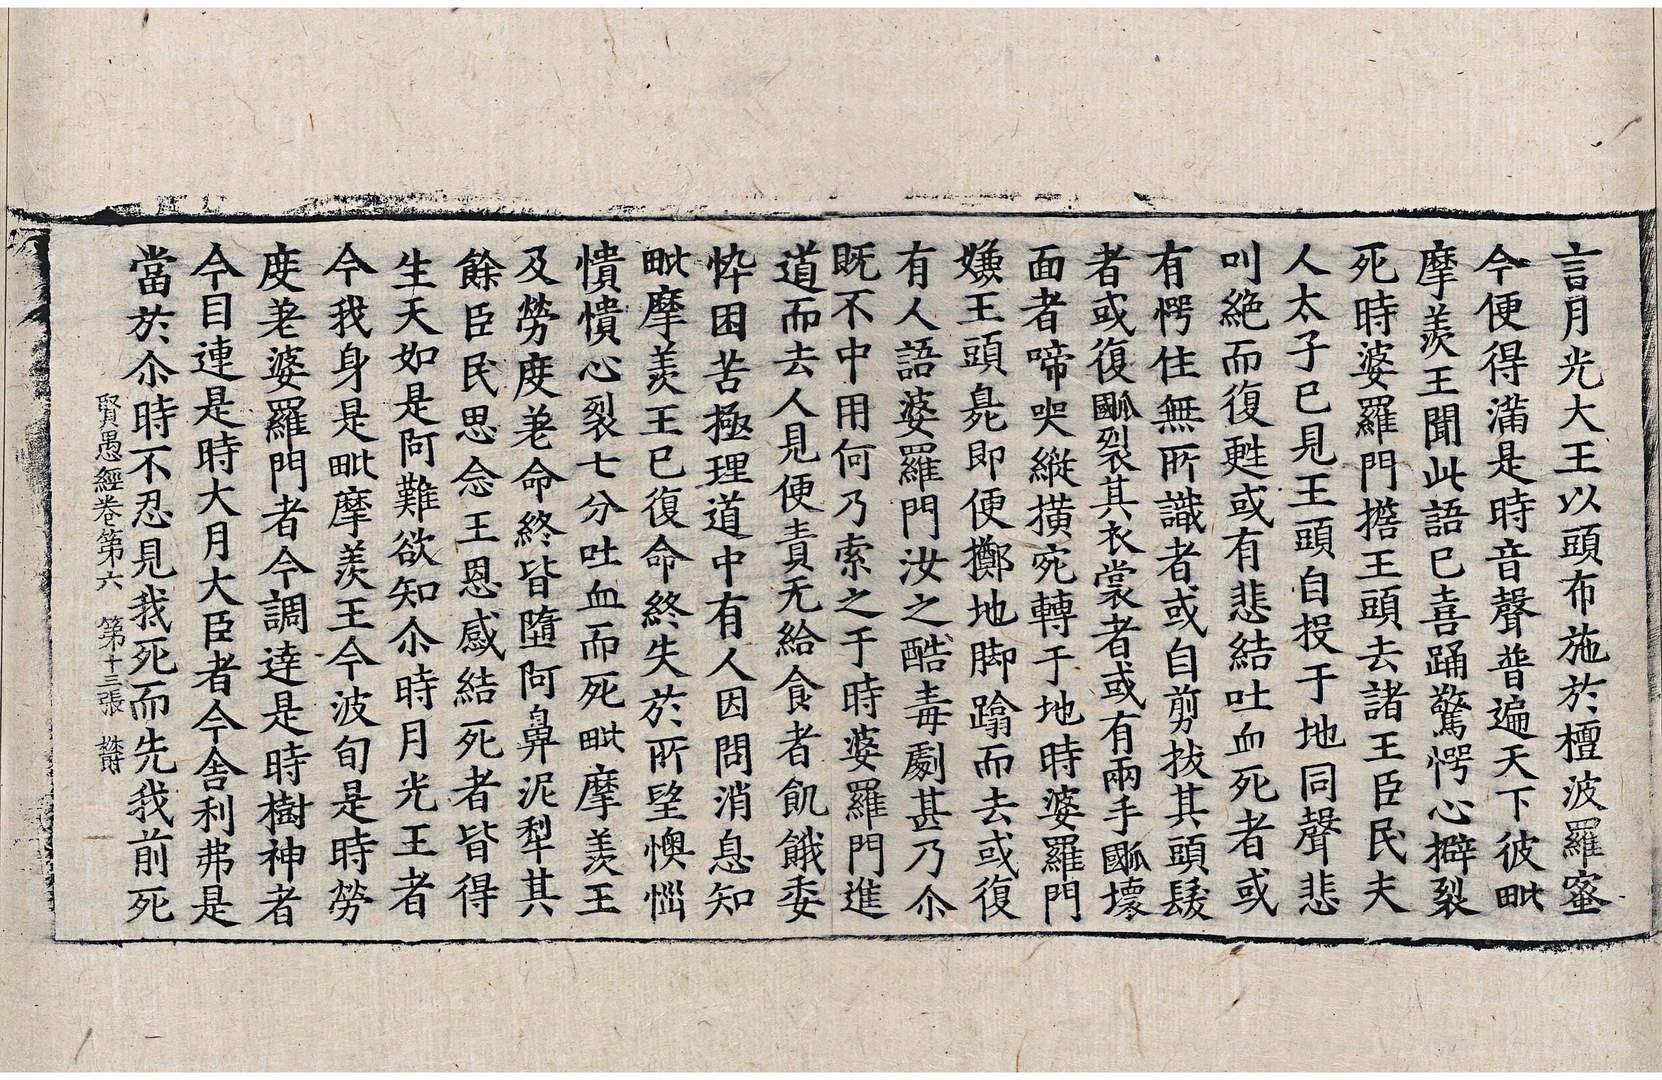 言月光大王以頭布施於檀波羅蜜
今便得滿是時音聲普遍天下彼毗
摩羨王聞此語已喜踊驚愕心擗裂
死時婆羅門擔王頭去諸王臣民夫
人太子已見王頭自投于地同聲悲
叫絶而復甦或有悲結吐血死者或
有愕住無所識者或自剪拔其頭髮
者或復爴裂其衣裳者或有兩手爴壞
面者啼哭縱橫宛轉于地時婆羅門
嫌王頭臰即便擲地脚蹹而去或復
有人語婆羅門汝之酷毒劇甚乃尒
既不中用何乃索之于時婆羅門進
道而去人見便責无給食者飢餓委
悴困苦極理道中有人因問消息知
毗摩羨王已復命終失於所望懊惱
憒憒心裂七分吐血而死毗摩羨王
及勞度差命終皆墮阿鼻泥犁其
餘臣民思念王恩感結死者皆得
生天如是阿難欲知尒時月光王者
今我身是毗摩羨王今波旬是時勞
度差婆羅門者今調達是時樹神者
今目連是時大月大臣者今舍利弗是
當於尒時不忍見我死而先我前死
賢愚經卷第六 第十三張